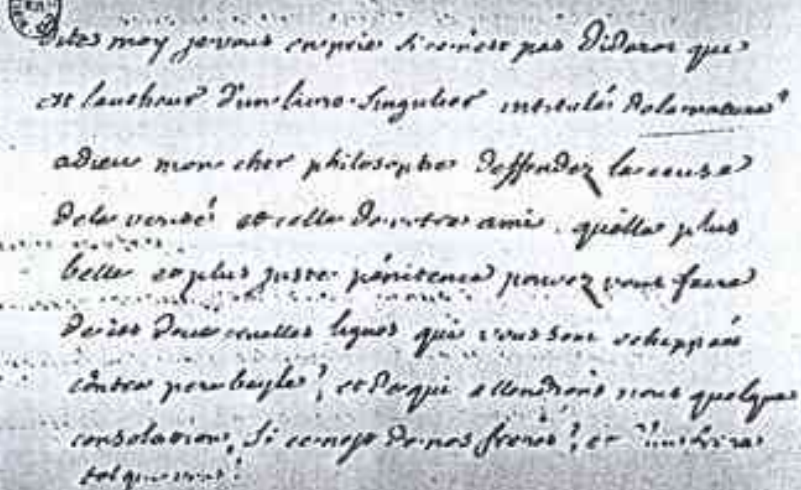 dites moy je vous en prie si ce n'est pas Diderot qui
est lautheur d'un livre singulier intitulé de la nature
adieu mon cher philosophe deffendez la cause
de la verité et celle de votre ami. quelle plus
belle et plus juste pénitence pouvez vous faire
de ces deux cruelles lignes qui vous sont echappées
contre bayle? et de qui attendrons nous quelque
consolation, si ce nest de nos freres? et d'un frere
tel que vous!